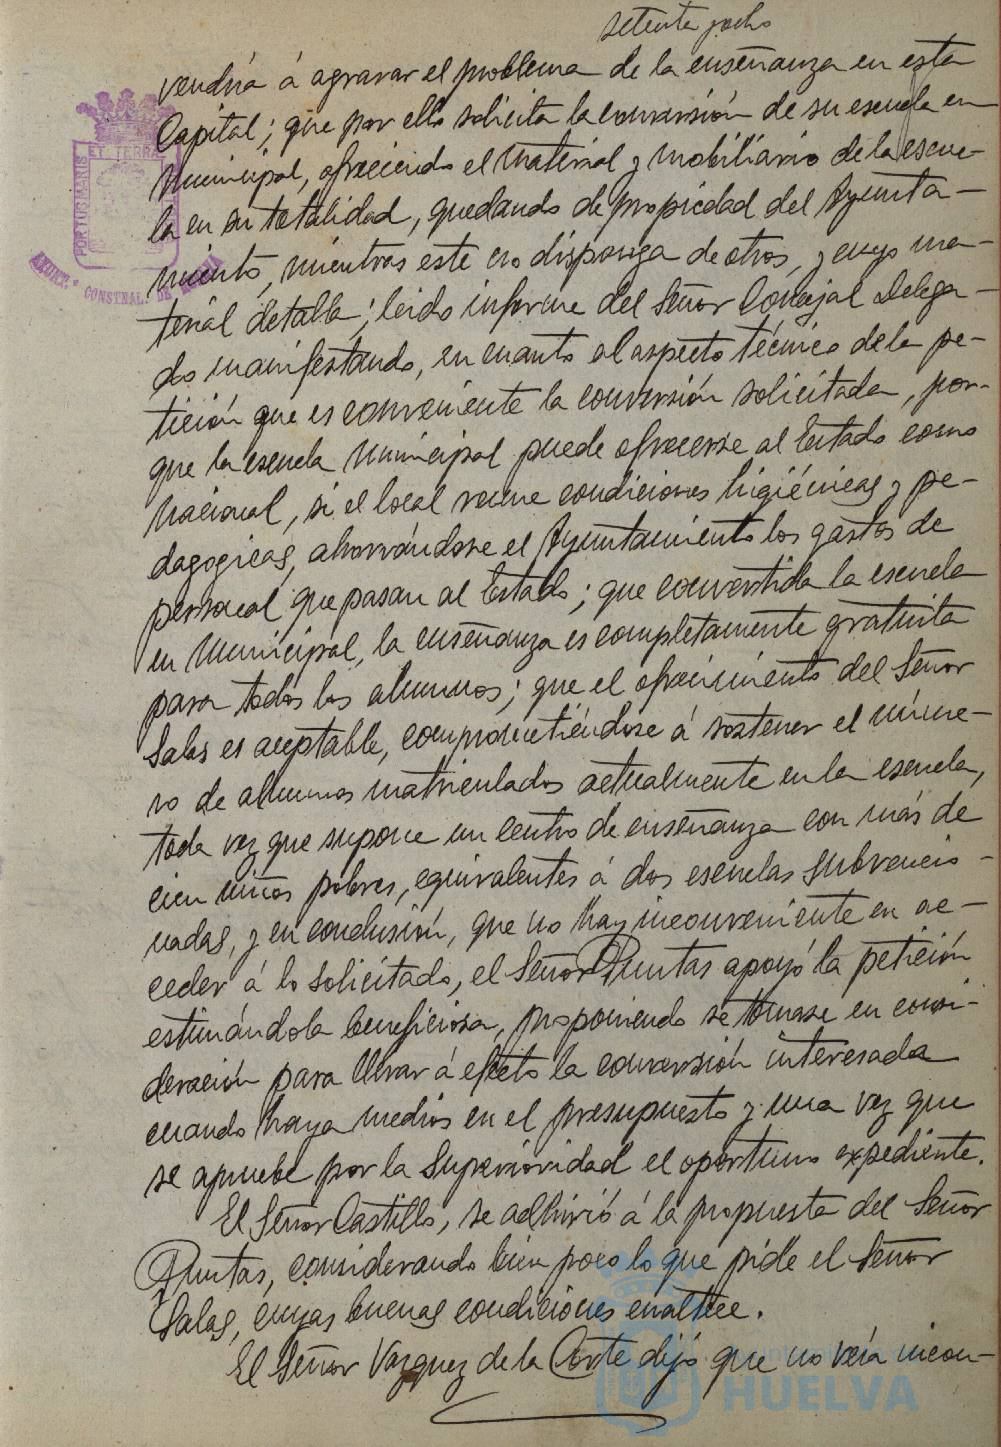 setenta y ocho
vendría á agravar el problema de la enseñanza en esta
Capital; que por ello solicita la conversión de su escuela en
Municipal, ofreciendo el material y mobiliario de la escue-
la en su totalidad, quedando de propiedad del Ayunta-
miento, mientras este no disponga de otros, y cuyo ma-
terial detalla; leido informe del Señor Concejal Delega-
do manifestando, en cuanto al aspecto técnico de la pe-
tición que es conveniente la conversión solicitada, por-
que la escuela Municipal puede ofrecerse al Estado como
Nacional, si el local reune condiciones higiénicas y pe-
dagogicas, ahorrándose el Ayuntamiento los gastos de
personal que pasan al Estado; que convertida la escuela
en Municipal, la enseñanza es completamente gratuita
para todos los alumnos; que el ofrecimiento del Señor
Salas es aceptable, comprometiéndose á sostener el núme-
ro de alumnos matriculados actualmente en la escuela,
toda vez que supone un centro de enseñanza con más de
cien niños pobres, equivalentes á dos escuelas subvencio-
nadas, y en conclusión, que no hay inconveniente en ac-
ceder á lo solicitado, el Señor Puntas apoyó la petición
estimándola beneficiosa, proponiendo se tomase en consi-
deración para llevar á efecto la conversión interesada
cuando haya medios en el presupuesto y una vez que
se apruebe por la Superioridad el oportuno expediente.
El Señor Castillo, se adhirió á la propuesta del Señor
Puntas, considerando bien poco lo que pide el Señor
Salas, cuyas buenas condiciones enaltece.
El Señor Vazquez de la Corte dijo que no veía incon-
PORTUS MARIS ET TERRAE
AYUNT. CONSTNAL. DE HUELVA
HUELVA